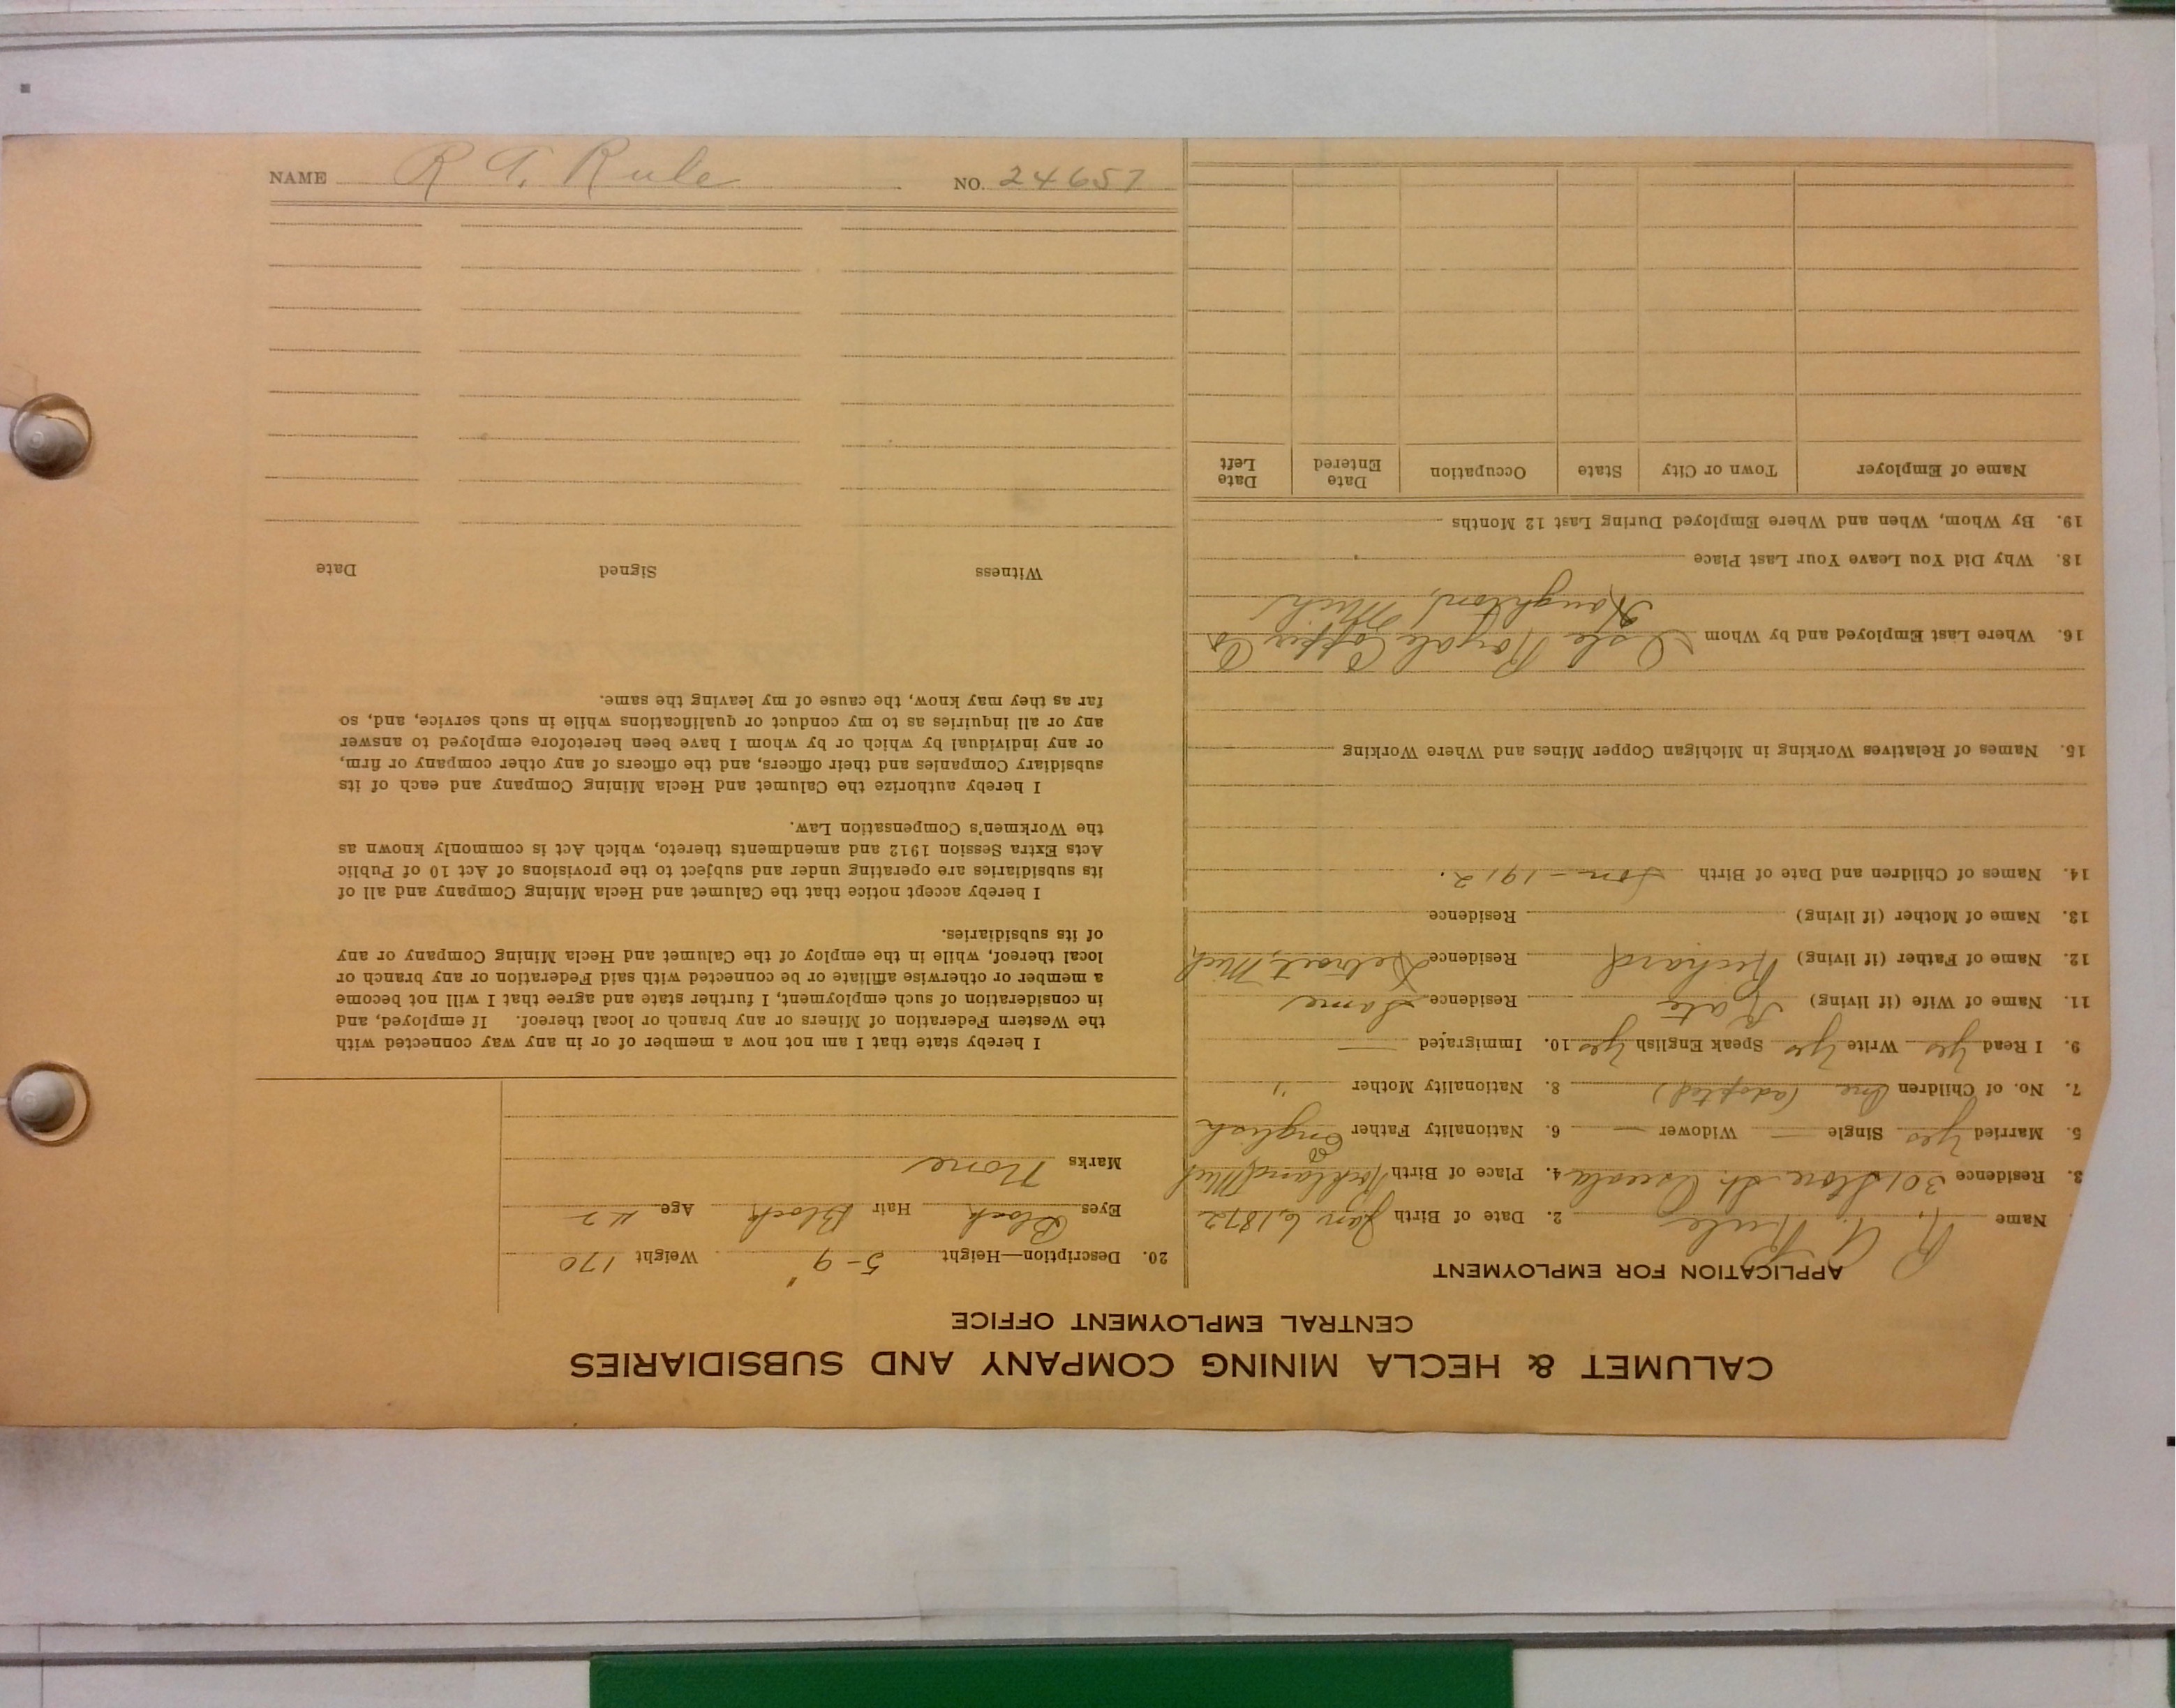 NAME R A. Rule NO. 24657
CALUMET & HECLA MINING COMPANY AND SUBSIDIARIES
CENTRAL EMPLOYMENT OFFICE
APPLICATION FOR EMPLOYMENT
Name R. A. Rule 2. Date of Birth Jan 6, 1872
3. Residence 301 Stone St. Osceola 4. Place of Birth Rockland Mich
5. Married Yes Single — Widower — 6. Nationality Father English
7. No. of Children One (adopted) 8. Nationality Mother "
9. I Read Yes Write Yes Speak English Yes 10. Immigrated —
11. Name of Wife (if living) Kate Residence Same
12. Name of Father (if living) Richard Residence Detroit, Mich
13. Name of Mother (if living) Residence
14. Names of Children and Date of Birth Son - 1912.
15. Names of Relatives Working in Michigan Copper Mines and Where Working
16. Where Last Employed and by Whom Isle Royale Copper Co
Houghton, Mich
18. Why Did You Leave Your Last Place
19. By Whom, When and Where Employed During Last 12 Months
Name of Employer Town or City State Occupation Date Entered Date Left
20. Description—Height 5-9" Weight 170
Eyes Black Hair Black Age 42
Marks None
I hereby state that I am not now a member of or in any way connected with
the Western Federation of Miners or any branch or local thereof. If employed, and
in consideration of such employment, I further state and agree that I will not become
a member or otherwise affiliate or be connected with said Federation or any branch or
local thereof, while in the employ of the Calumet and Hecla Mining Company or any
of its subsidiaries.
I hereby accept notice that the Calumet and Hecla Mining Company and all of
its subsidiaries are operating under and subject to the provisions of Act 10 of Public
Acts Extra Session 1912 and amendments thereto, which Act is commonly known as
the Workmen's Compensation Law.
I hereby authorize the Calumet and Hecla Mining Company and each of its
subsidiary Companies and their officers, and the officers of any other company or firm,
or any individual by which or by whom I have been heretofore employed to answer
any or all inquiries as to my conduct or qualifications while in such service, and, so
far as they may know, the cause of my leaving the same.
Witness Signed Date